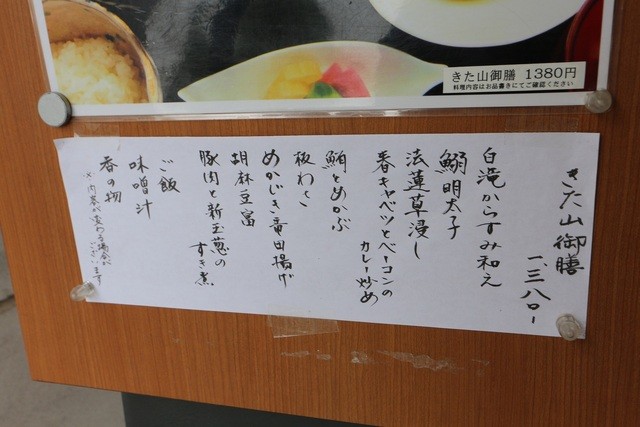 きた山御膳 1380円
料理内容はお品書きにてご確認ください
きた山御膳
一、三八〇ー
白滝からすみ和え
鰯明太子
法蓮草浸し
春キャベツとベーコンの
カレー炒め
鮪とめかぶ
板わさ
めかじき竜田揚げ
胡麻豆富
豚肉と新玉葱の
すき煮
ご飯
味噌汁
香の物
※内容が変わる場合が
ございます